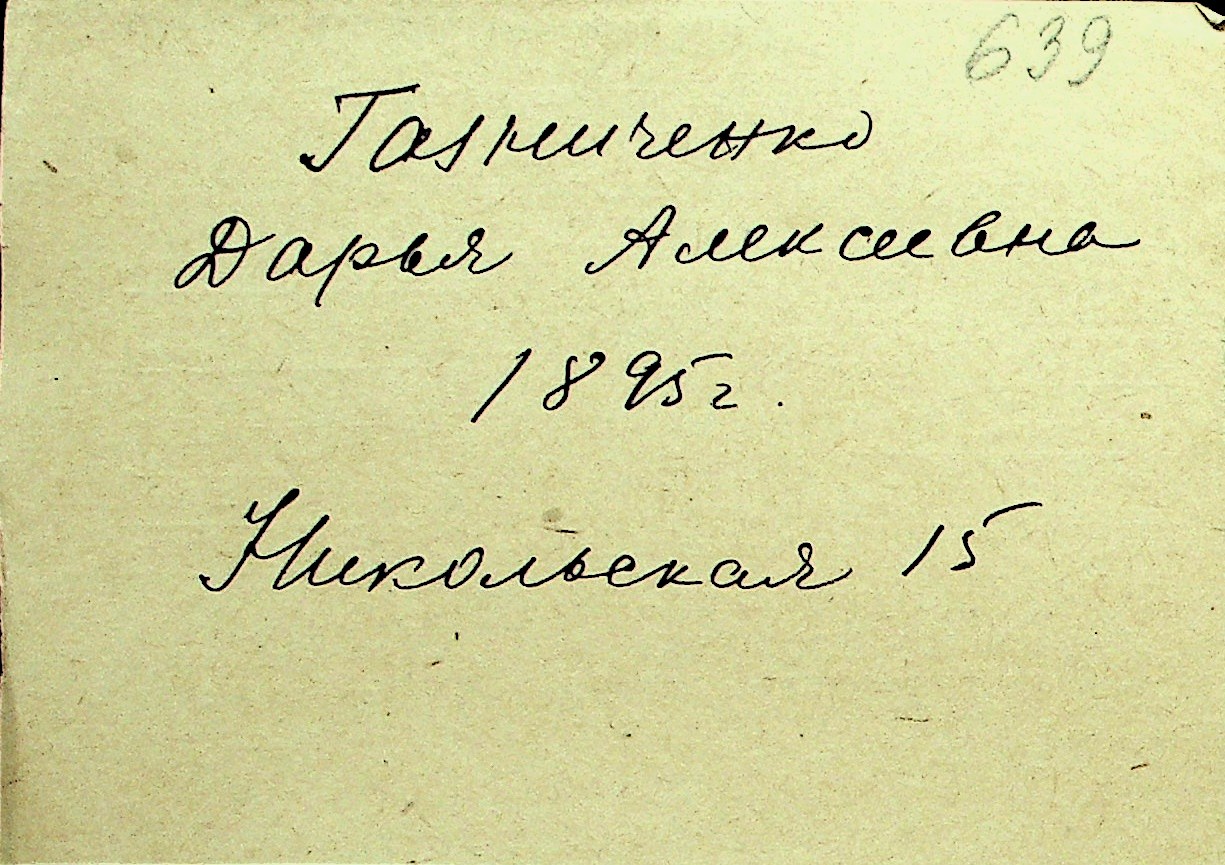 639
Дарья Алексеевна
1895г.
Никольская 15